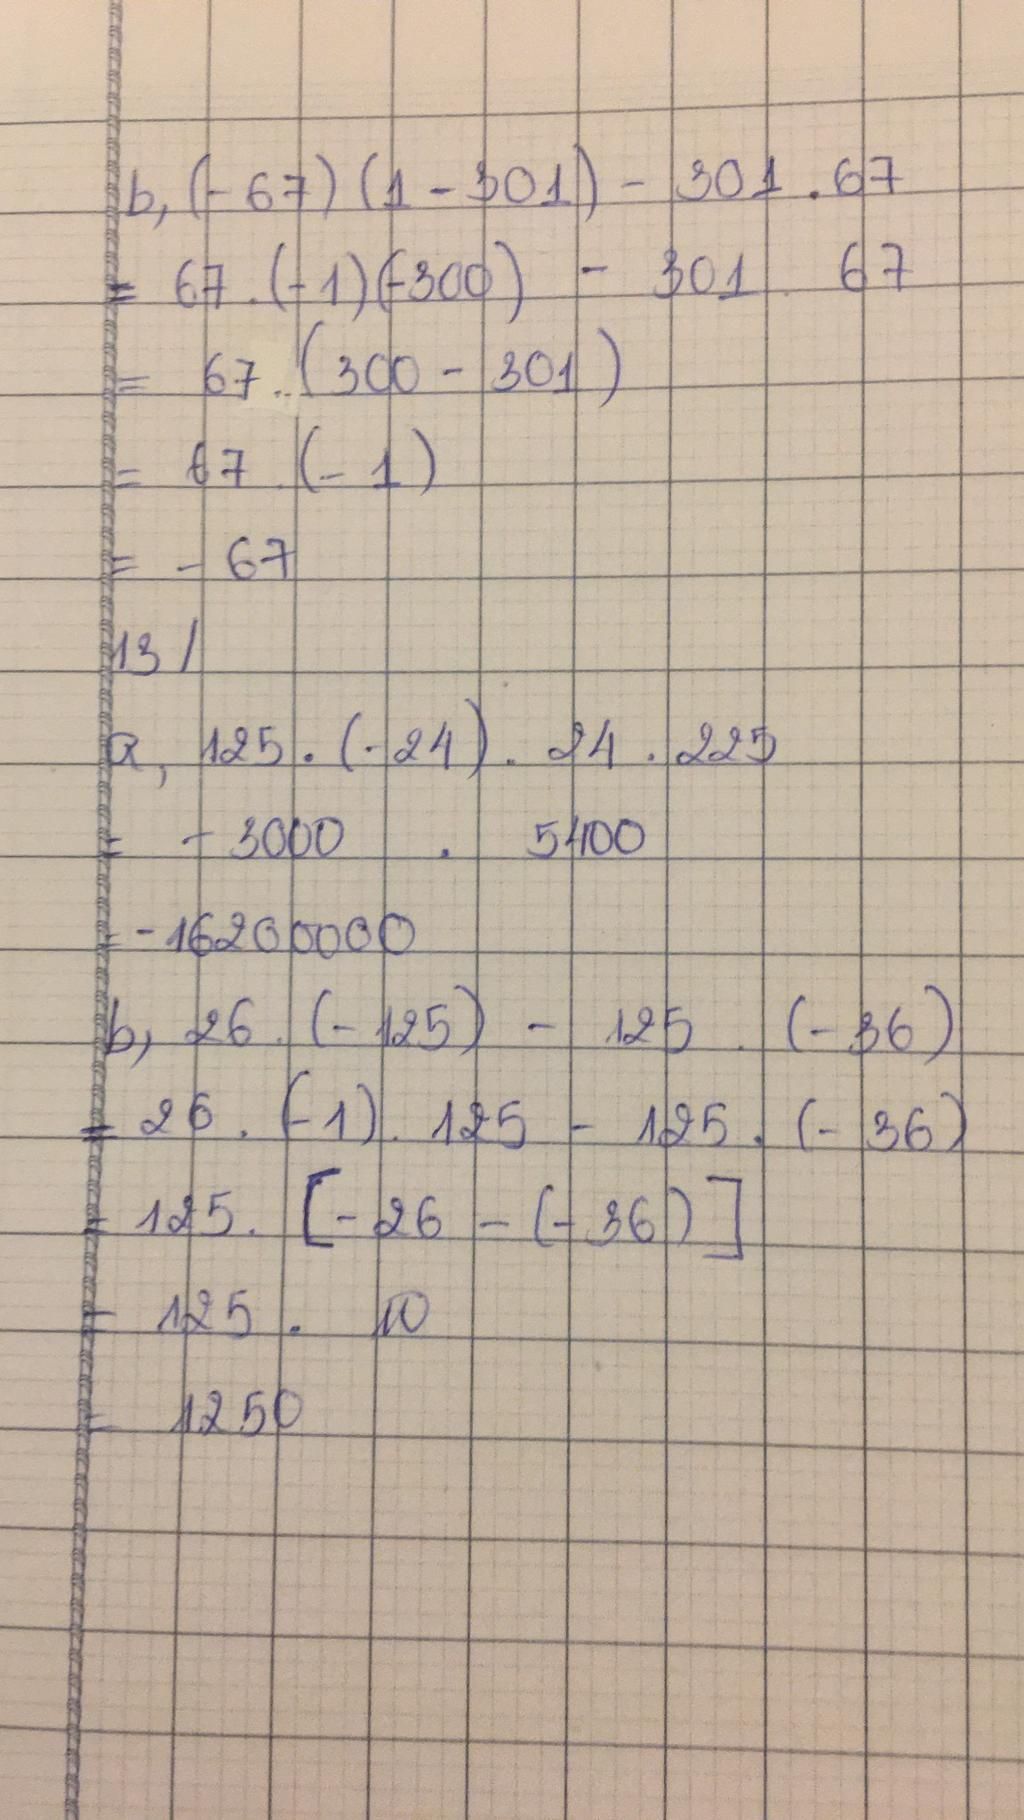 b, (- 67) (1 - 301) - 301 . 67
= 67 . (- 1) (-300) - 301 . 67
= 67 . (300 - 301)
= 67 . (- 1)
= - 67
13 /
a, 125 . (- 24) . 24 . 225
= - 3000 . 5400
= - 16200000
b, 26 . (- 125) - 125 . (- 36)
= 26 . (- 1) . 125 - 125 . (- 36)
= 125 . [- 26 - (- 36)]
= 125 . 10
= 1250